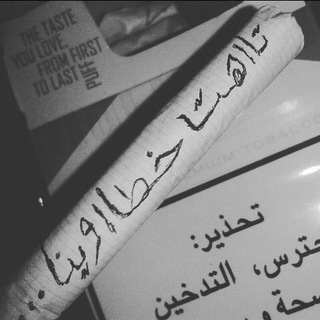 THE TASTE
YOU LOVE,
FROM FIRST
TO LAST
PUFF
تااهت خطااوينا...
MIUM TOBACCO
تحذير:
حترس، التدخين
صحة و